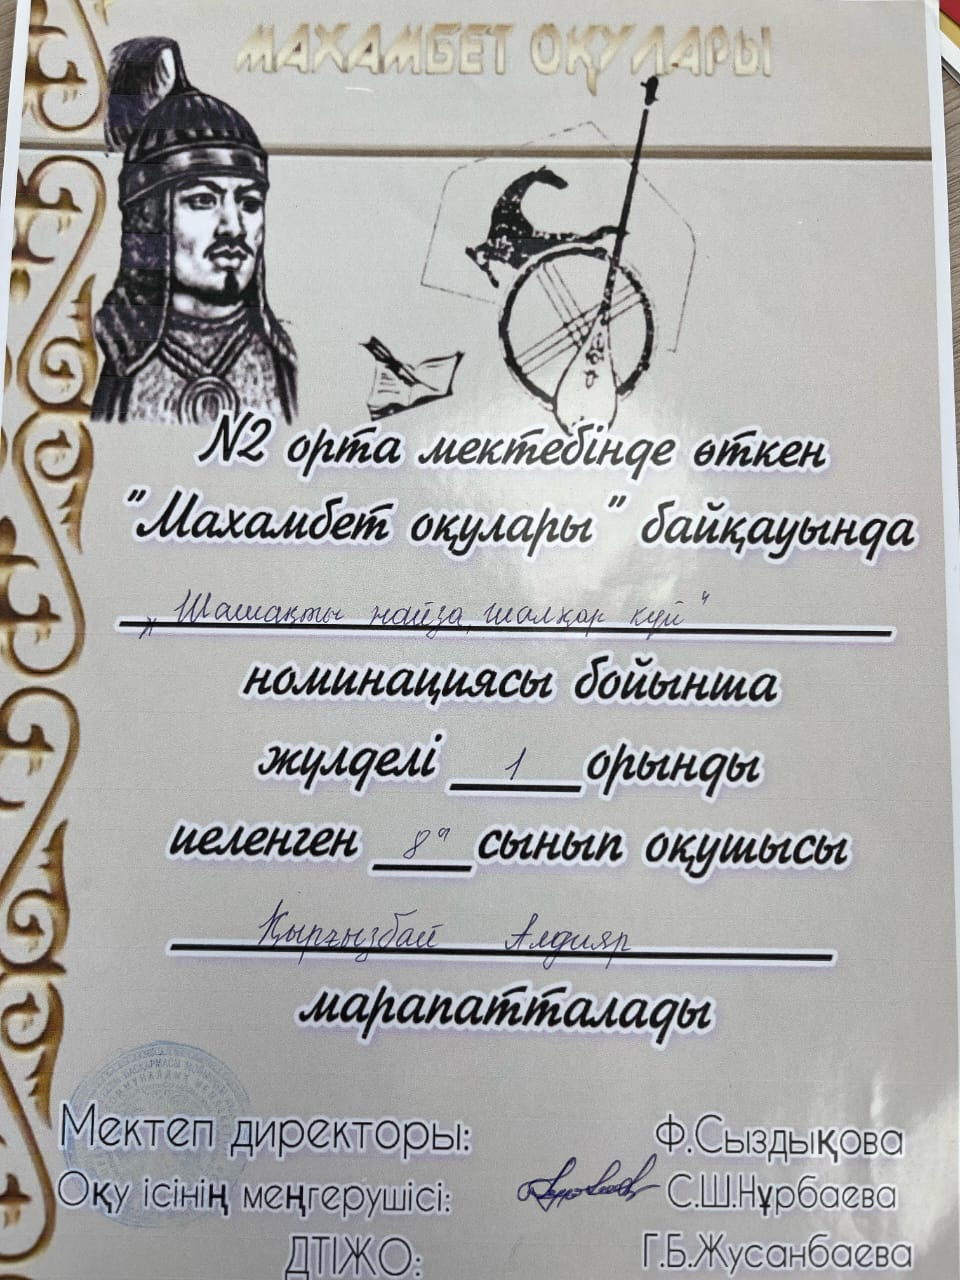 МАХАМБЕТ ОҚУЛАРЫ
N2 орта мектебінде өткен
"Махамбет оқулары" байқауында
„Шашақты найза, шалқар күй"
номинациясы бойынша
жүлделі 1 орынды
иеленген 8"а" сынып оқушысы
Қырғызбай Алдияр
марапатталады
Мектеп директоры: Ф.Сыздықова
Оқу ісінің меңгерушісі: С.Ш.Нұрбаева
ДТІЖО: Г.Б.Жусанбаева